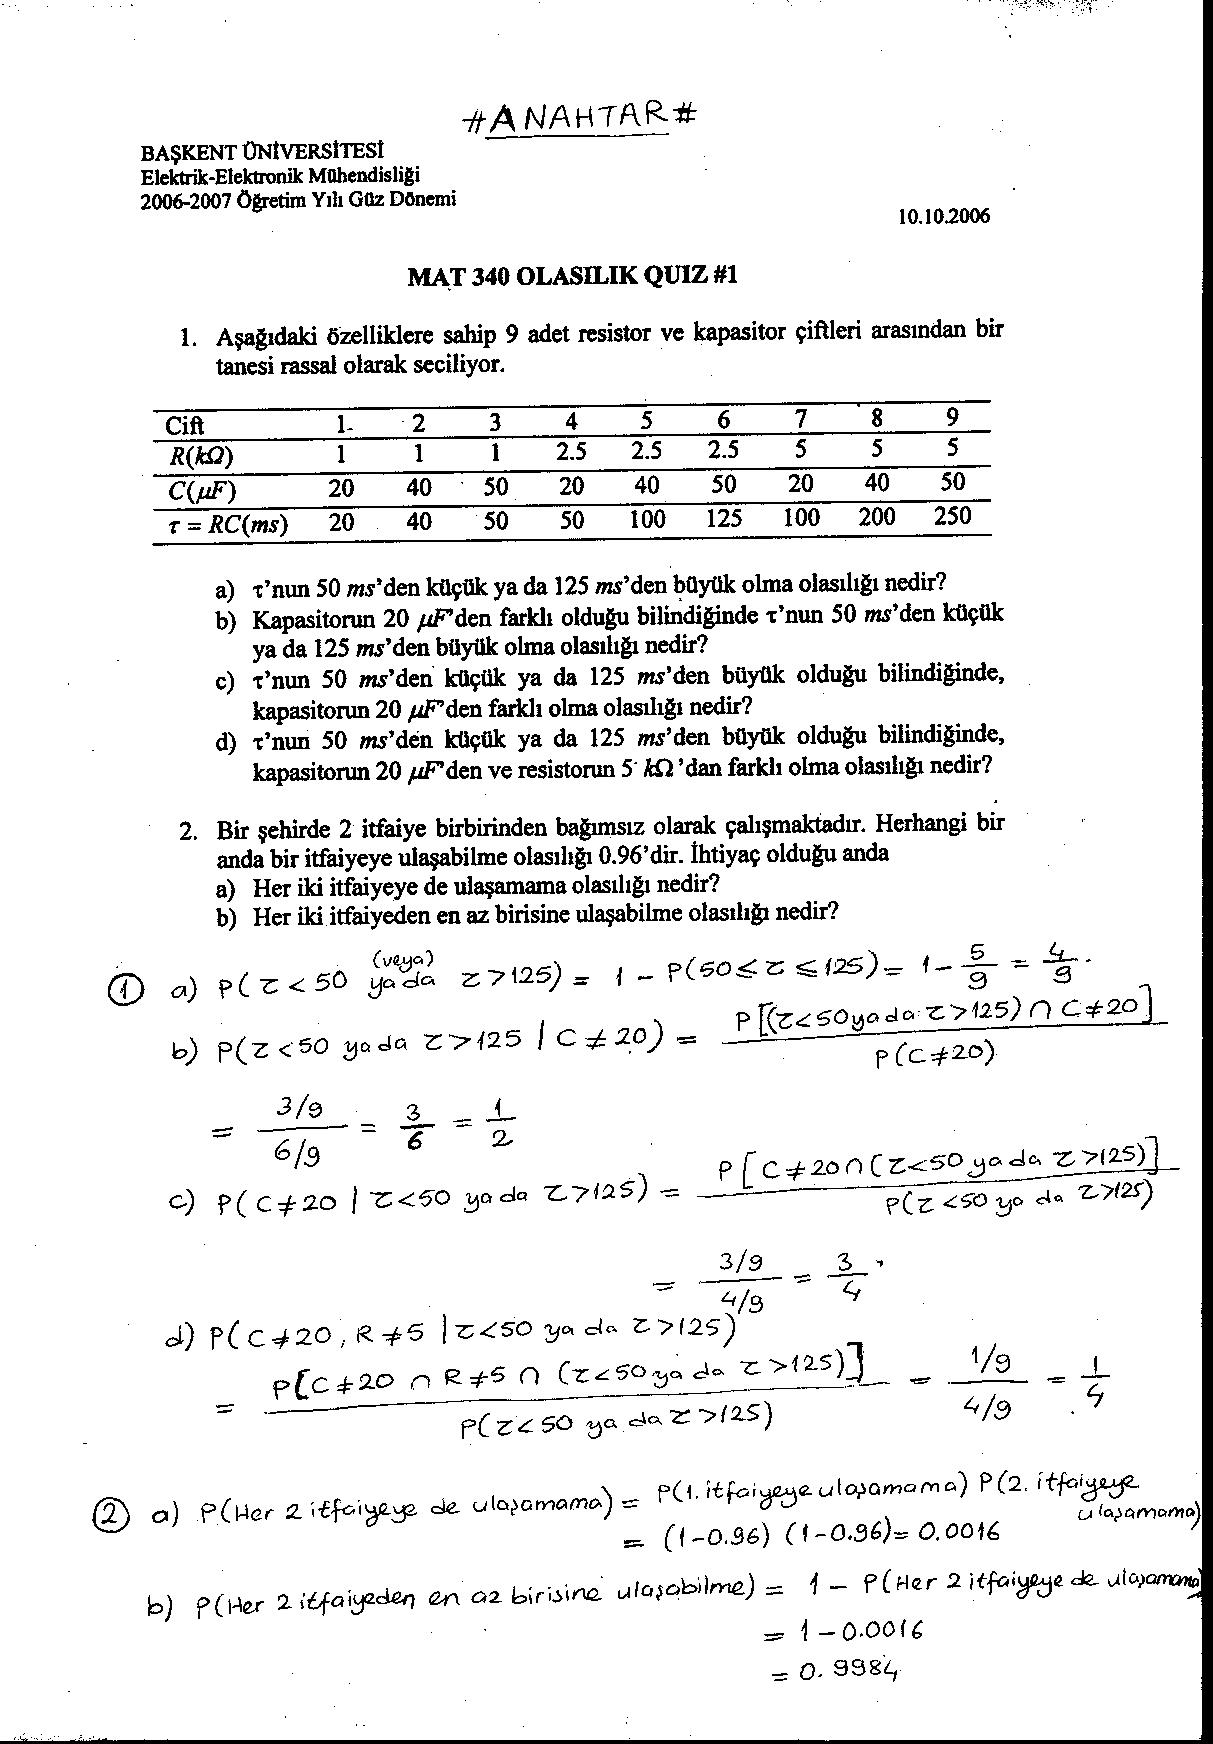 #ANAHTAR#
BAŞKENT ÜNİVERSİTESİ
Elektrik-Elektronik Mühendisliği
2006-2007 Öğretim Yılı Güz Dönemi
10.10.2006
MAT 340 OLASILIK QUIZ #1
1. Aşağıdaki özelliklere sahip 9 adet resistor ve kapasitor çiftleri arasından bir
tanesi rassal olarak seciliyor.
Cift 1 2 3 4 5 6 7 8 9
R(kΩ) 1 1 1 2.5 2.5 2.5 5 5 5
C(μF) 20 40 50 20 40 50 20 40 50
τ = RC(ms) 20 40 50 50 100 125 100 200 250
a) τ'nun 50 ms'den küçük ya da 125 ms'den büyük olma olasılığı nedir?
b) Kapasitorun 20 μF'den farklı olduğu bilindiğinde τ'nun 50 ms'den küçük
ya da 125 ms'den büyük olma olasılığı nedir?
c) τ'nun 50 ms'den küçük ya da 125 ms'den büyük olduğu bilindiğinde,
kapasitorun 20 μF'den farklı olma olasılığı nedir?
d) τ'nun 50 ms'den küçük ya da 125 ms'den büyük olduğu bilindiğinde,
kapasitorun 20 μF'den ve resistorun 5 kΩ'dan farklı olma olasılığı nedir?
2. Bir şehirde 2 itfaiye birbirinden bağımsız olarak çalışmaktadır. Herhangi bir
anda bir itfaiyeye ulaşabilme olasılığı 0.96'dir. İhtiyaç olduğu anda
a) Her iki itfaiyeye de ulaşamama olasılığı nedir?
b) Her iki itfaiyeden en az birisine ulaşabilme olasılığı nedir?
(veya)
① a) P(τ < 50 ya da τ > 125) = 1 - P(50 ≤ τ ≤ 125) = 1 - 5/9 = 4/9.
b) P(τ < 50 ya da τ > 125 | C ≠ 20) = P[(τ<50 ya da τ>125) ∩ C≠20] / P(C≠20)
= 3/9 / 6/9 = 3/6 = 1/2
c) P(C≠20 | τ<50 ya da τ>125) = P[C≠20 ∩ (τ<50 ya da τ>125)] / P(τ<50 ya da τ>125)
= 3/9 / 4/9 = 3/4
d) P(C≠20, R≠5 | τ<50 ya da τ>125)
= P[C≠20 ∩ R≠5 ∩ (τ<50 ya da τ>125)] / P(τ<50 ya da τ>125) = 1/9 / 4/9 = 1/4
② a) P(Her 2 itfaiyeye de ulaşamama) = P(1. itfaiyeye ulaşamama) P(2. itfaiyeye
ulaşamama)
= (1-0.96) (1-0.96) = 0.0016
b) P(Her 2 itfaiyeden en az birisine ulaşabilme) = 1 - P(Her 2 itfaiyeye de ulaşamama)
= 1 - 0.0016
= 0.9984